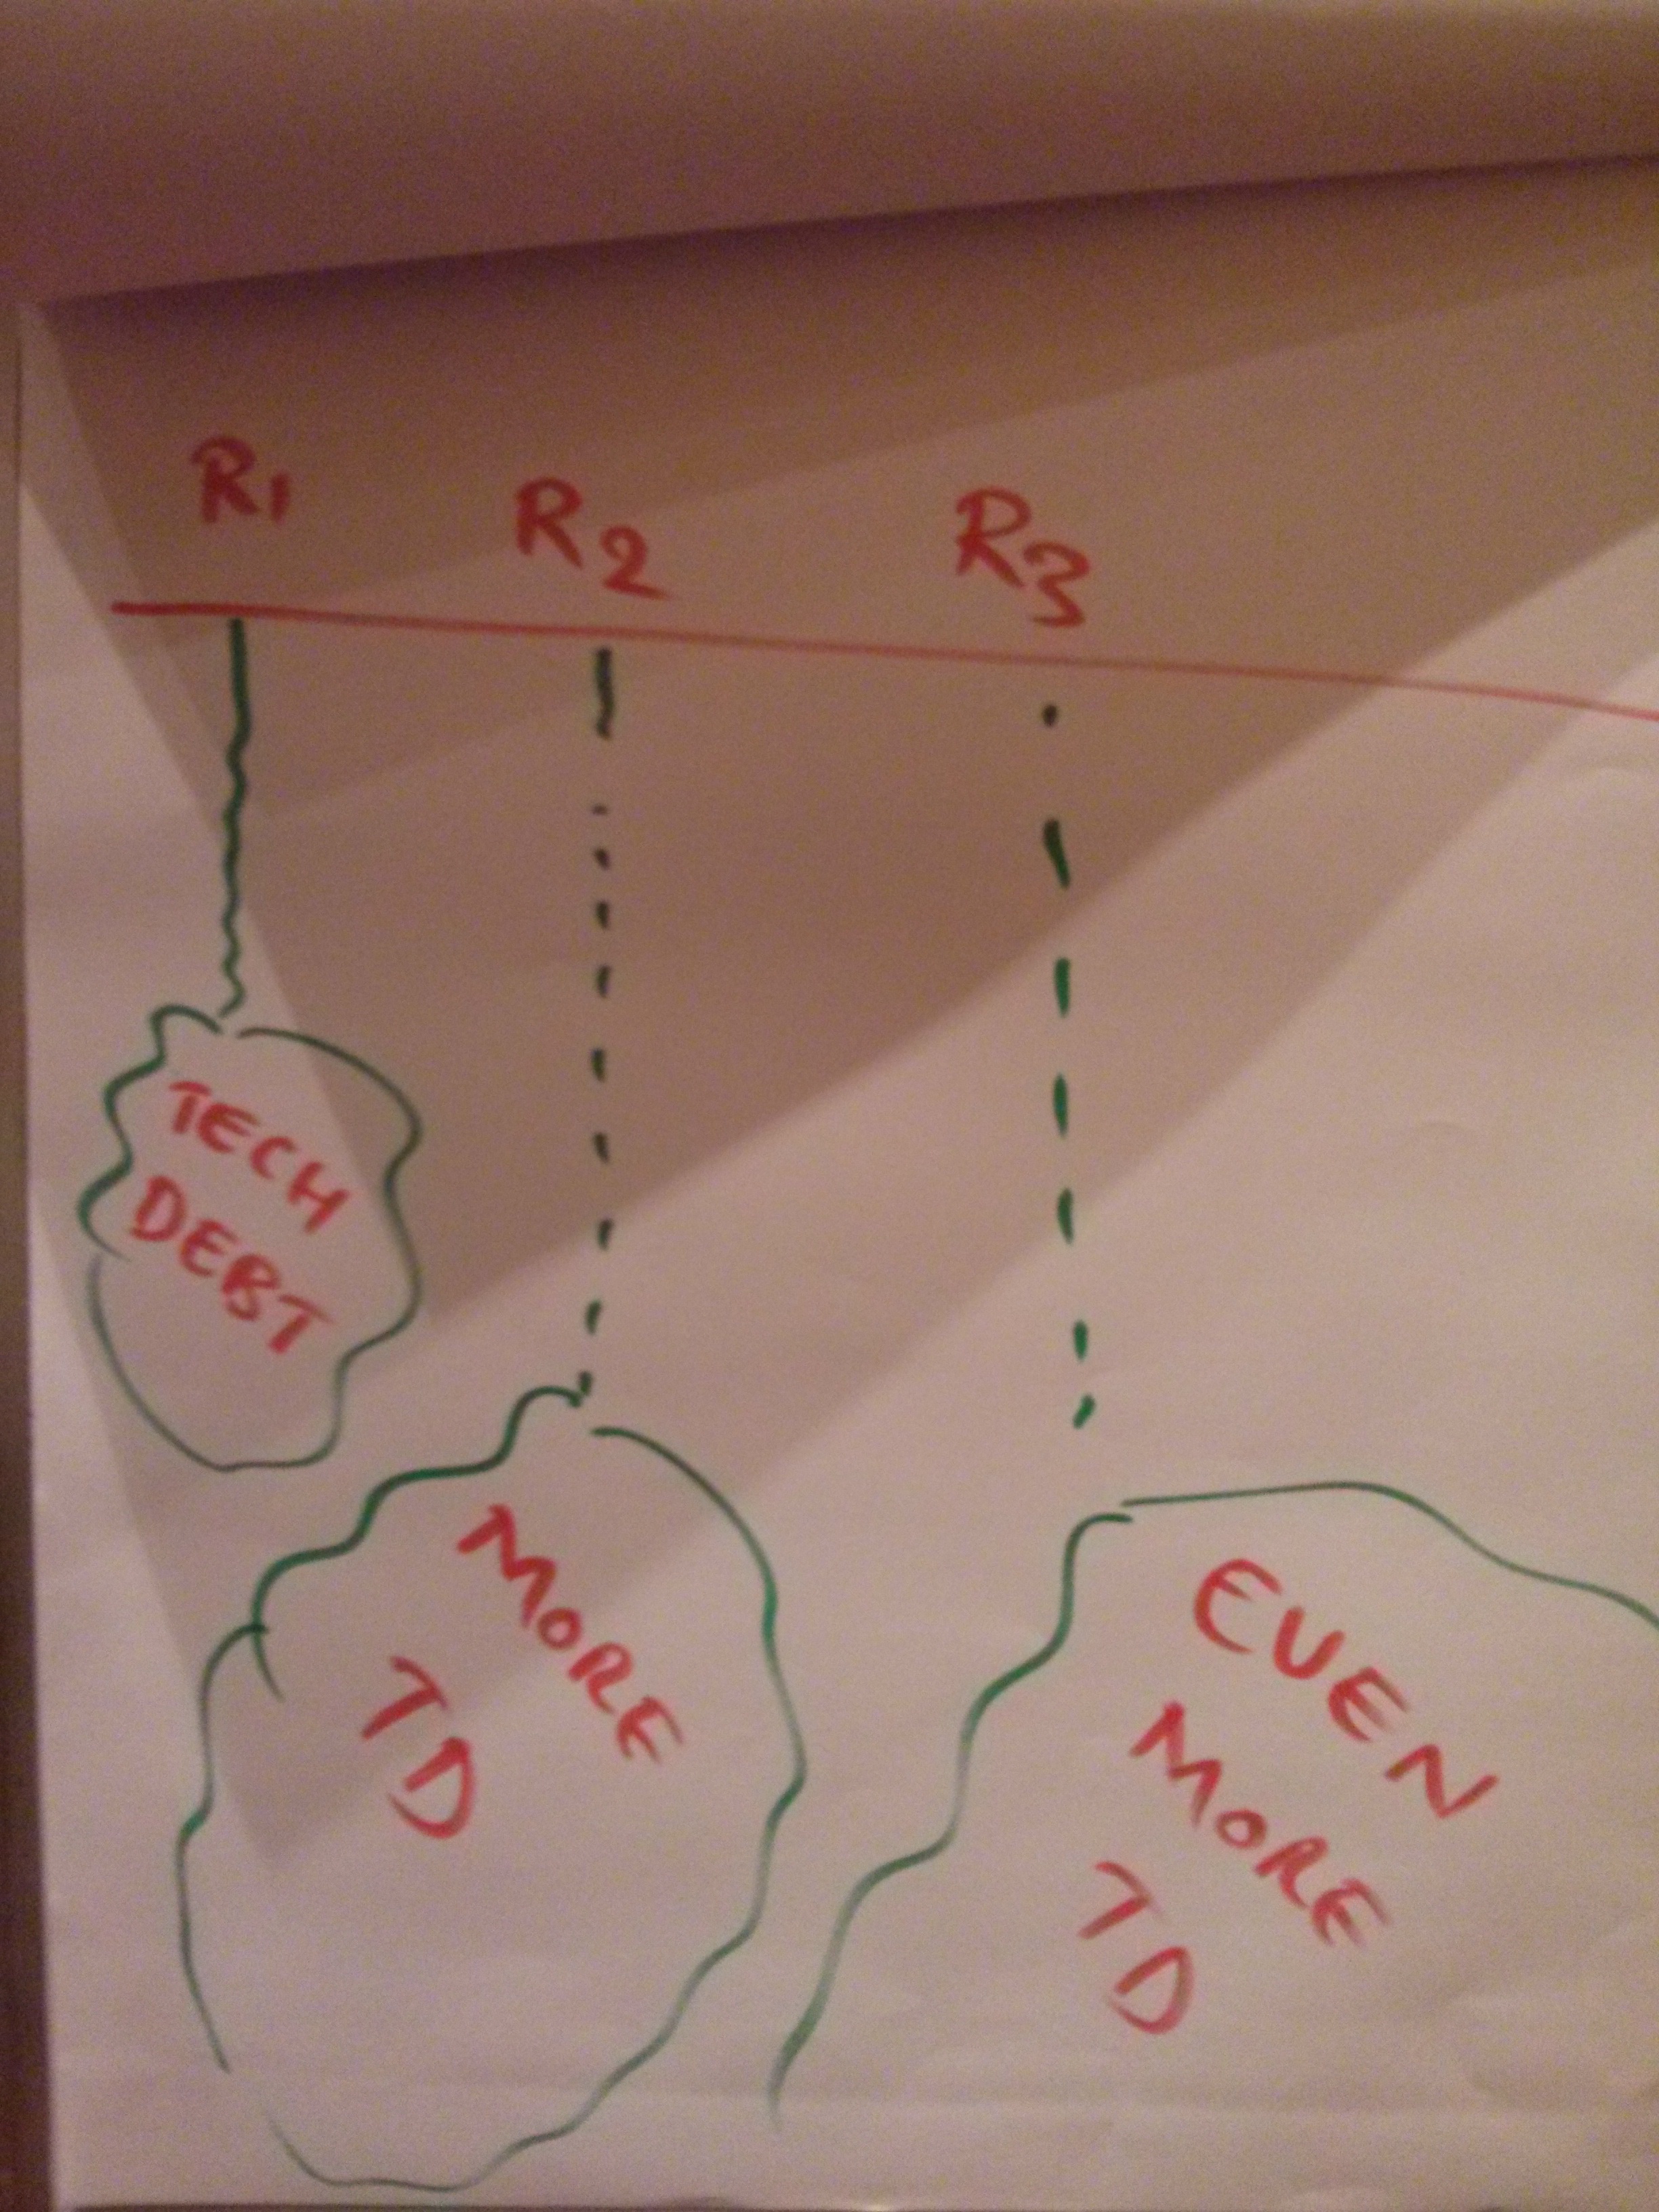 R1 R2 R3
TECH
DEBT
MORE
TD
EVEN
MORE
TD